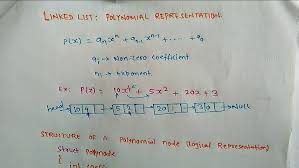 LINKED LIST: POLYNOMIAL REPRESENTATION:
P(x) = aₙxⁿ + aₙ₋₁xⁿ⁻¹ + ..... + a₀
aᵢ → Non-zero coefficient
nᵢ → Exponent
Ex: P(x) = 10x⁴ + 5x² + 20x + 3
head → 10 4 → 5 2 → 20 1 → 3 0 → NULL
STRUCTURE OF A Polynomial node (logical Representation)
Struct Polynode
{ int